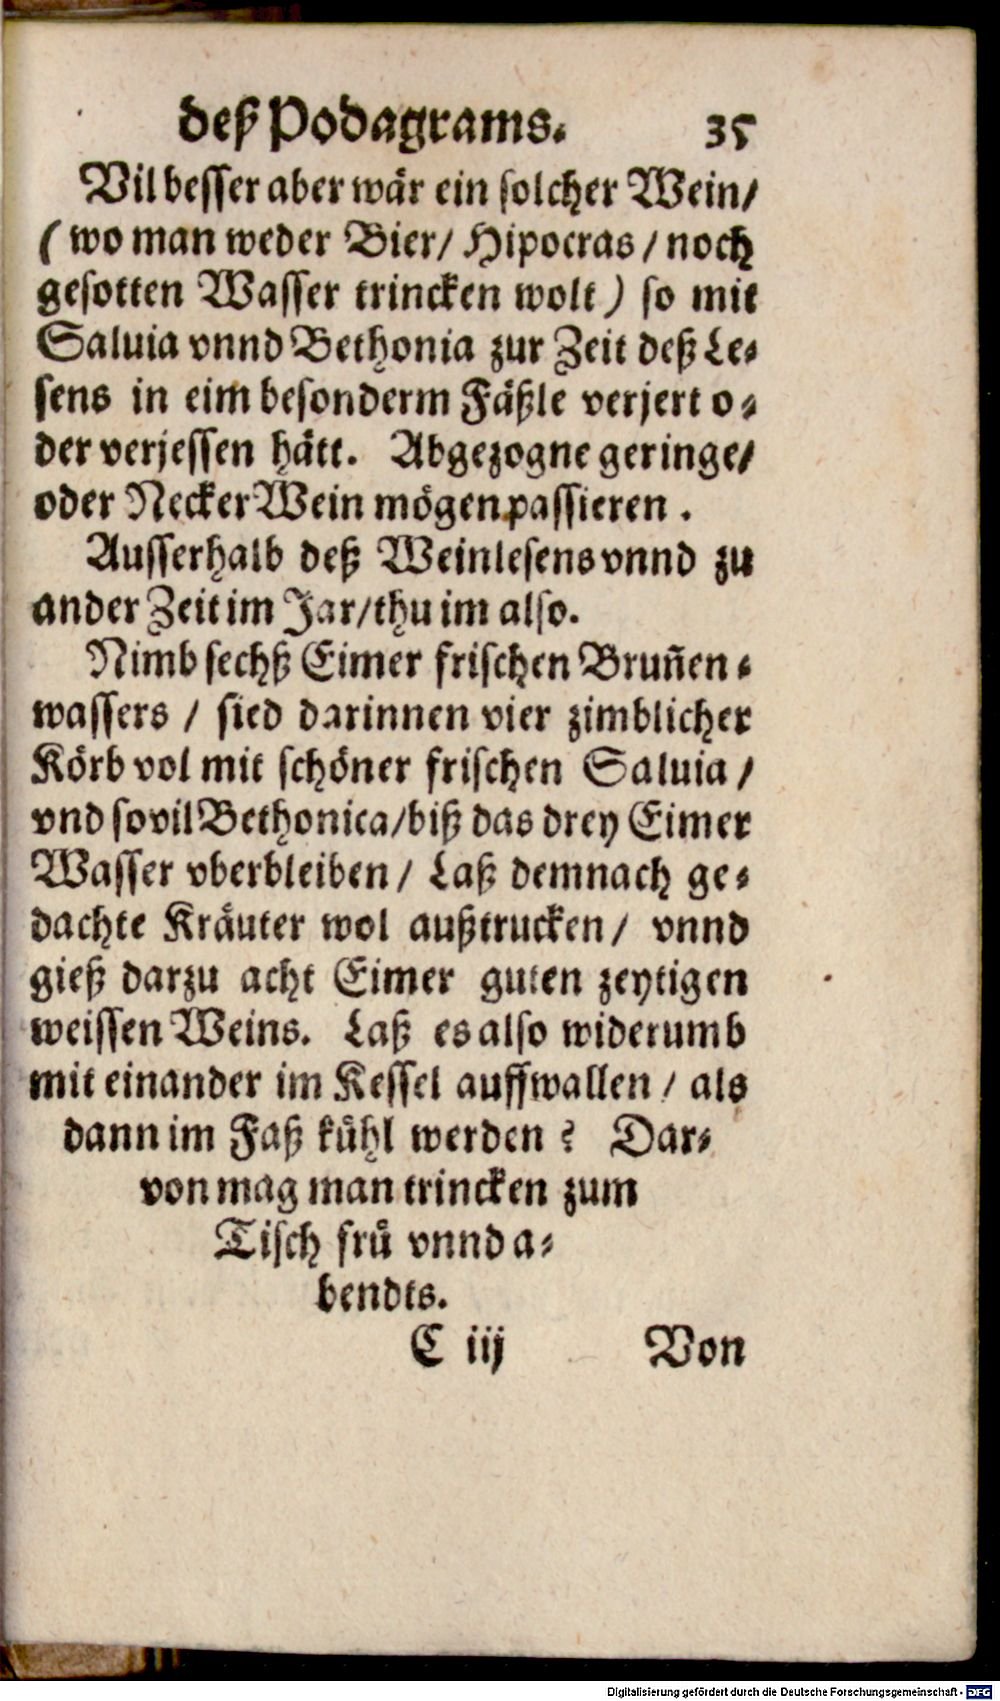 deß Podagrams. 35
Vil besser aber wär ein solcher Wein/
( wo man weder Bier/ Hipocras / noch
gesotten Wasser trincken wolt ) so mit
Saluia vnnd Bethonia zur Zeit deß Le-
sens in eim besonderm Fäßle verjert o-
der verjessen hätt. Abgezogne geringe/
oder Necker Wein mögen passieren .
Ausserhalb deß Weinlesens vnnd zu
ander Zeit im Jar/thu im also.
Nimb sechß Eimer frischen Brun̄en-
wassers / sied darinnen vier zimblicher
Körb vol mit schöner frischen Saluia /
vnd so vil Bethonica/biß das drey Eimer
Wasser vberbleiben / Laß demnach ge-
dachte Kräuter wol außtrucken / vnnd
gieß darzu acht Eimer guten zeytigen
weissen Weins. Laß es also widerumb
mit einander im Kessel auffwallen / als
dann im Faß kühl werden ? Dar-
von mag man trincken zum
Tisch frü vnnd a-
bendts.
C iij Von
Digitalisierung gefördert durch die Deutsche Forschungsgemeinschaft - DFG